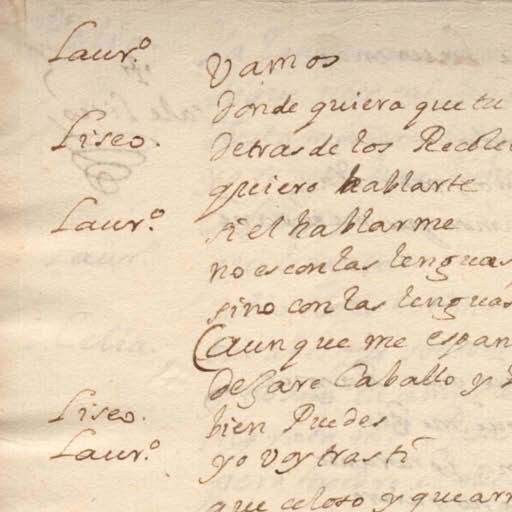 Laur.º Vamos
donde quiera que tu
Liseo. detras de los Recole
quiero hablarte
Laur.º si el hablarme
no es con las lenguas
sino con las lenguas
(aunque me espan
dejare Caballo y
Liseo. bien Puedes
Laur.º yo voy tras ti
que celoso y quearr